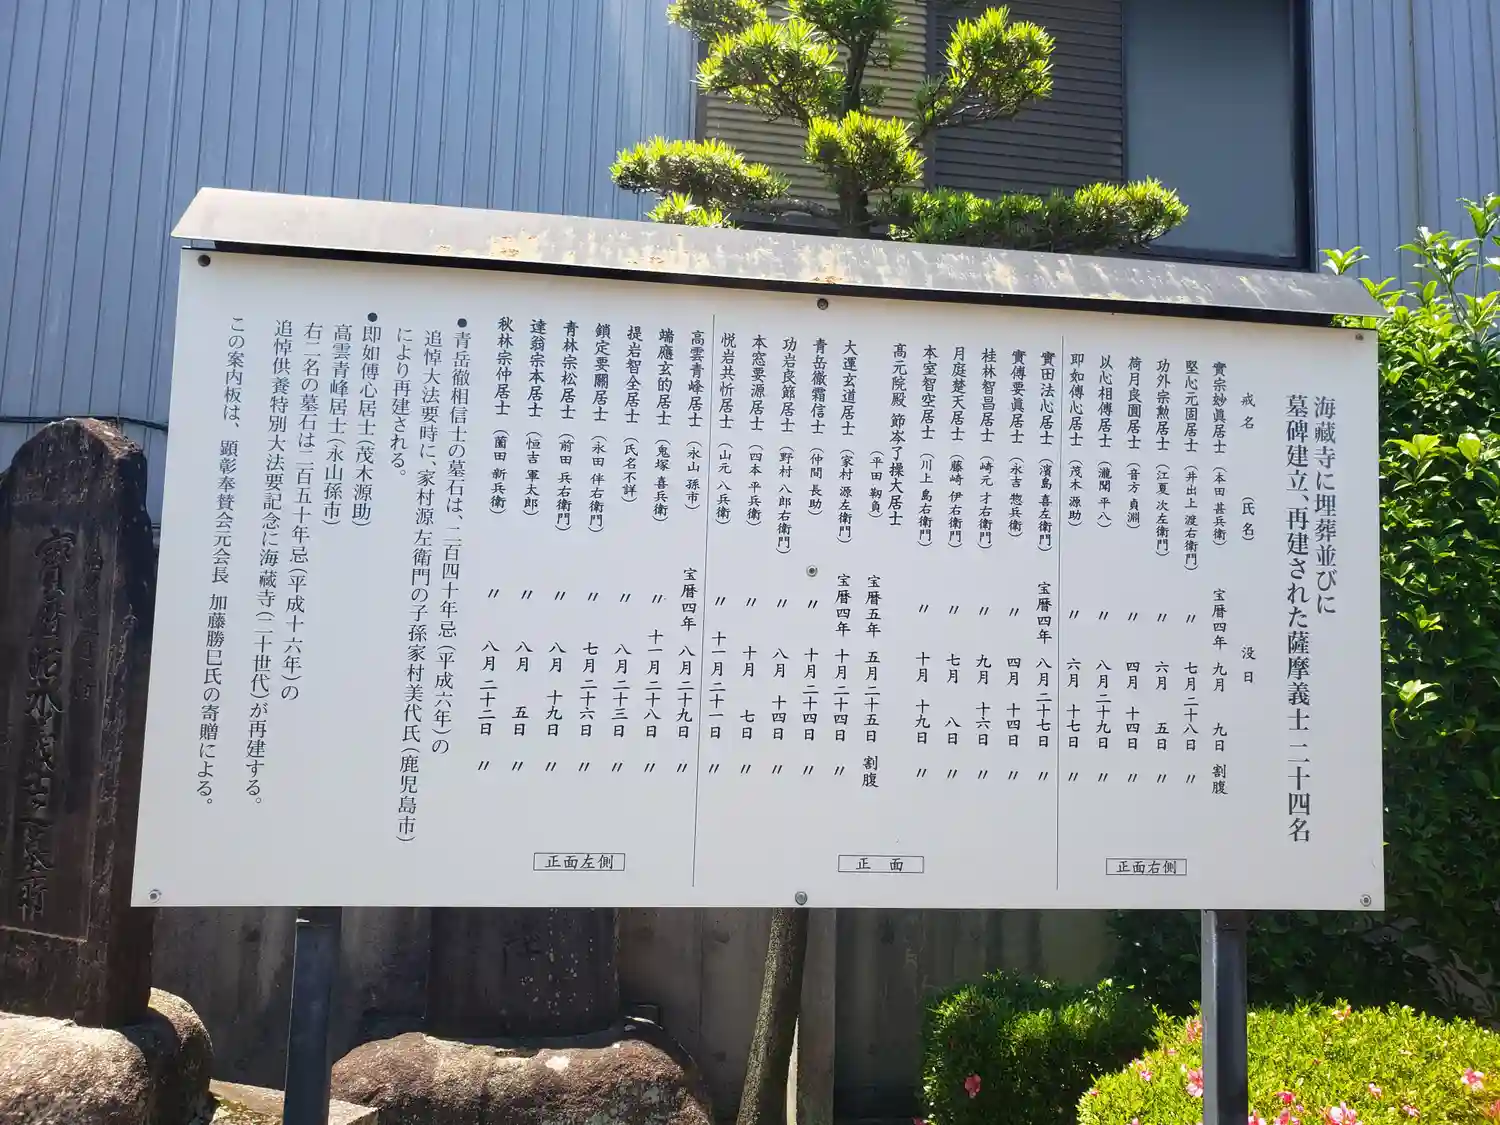 海藏寺に埋葬並びに
墓碑建立、再建された薩摩義士二十四名
戒名 (氏名) 没日
實宗妙眞居士 (本田 甚兵衛) 宝暦四年 九月 九日 割腹
堅心元固居士 (井出上 渡右衛門) 〃 七月二十八日 〃
功外宗勲居士 (江夏 次左衛門) 〃 六月 五日 〃
荷月良圓居士 (音方 貞淵) 〃 四月 十四日 〃
以心相傳居士 (瀧聞 平八) 〃 八月二十九日 〃
即如傳心居士 (茂木 源助) 〃 六月 十七日 〃
正面右側
實田法心居士 (濱島 喜左衛門) 宝暦四年 八月二十七日 〃
實傳要眞居士 (永吉 惣兵衛) 〃 四月 十四日 〃
桂林智昌居士 (崎元 才右衛門) 〃 九月 十六日 〃
月庭楚天居士 (藤崎 伊右衛門) 〃 七月 八日 〃
本室智空居士 (川上 島右衛門) 〃 十月 十九日 〃
高元院殿 節岑了操大居士
(平田 靱負) 宝暦五年 五月二十五日 割腹
大運玄道居士 (家村 源左衛門) 宝暦四年 十月二十四日 〃
青岳徹霜信士 (仲間 長助) 〃 十月二十四日 〃
功岩良節居士 (野村 八郎右衛門) 〃 八月 十四日 〃
本窓要源居士 (四本 平兵衛) 〃 十月 七日 〃
悦岩共忻居士 (山元 八兵衛) 〃 十一月二十一日 〃
正面
高雲青峰居士 (永山 孫市) 宝暦四年 八月二十九日 〃
端應玄的居士 (鬼塚 喜兵衛) 〃 十一月二十八日 〃
提岩智全居士 (氏名不詳) 〃 八月二十三日 〃
鎖定要關居士 (永田 伴右衛門) 〃 七月二十六日 〃
青林宗松居士 (前田 兵右衛門) 〃 八月 十九日 〃
達翁宗本居士 (恒吉 軍太郎) 〃 八月 五日 〃
秋林宗仲居士 (薗田 新兵衛) 〃 八月二十二日 〃
正面左側
●青岳徹相信士の墓石は、二百四十年忌(平成六年)の
追悼大法要時に、家村源左衛門の子孫家村美代氏(鹿児島市)
により再建される。
●即如傳心居士(茂木源助)
高雲青峰居士(永山孫市)
右二名の墓石は二百五十年忌(平成十六年)の
追悼供養特別大法要記念に海蔵寺(二十世代)が再建する。
この案内板は、顕彰奉賛会元会長 加藤勝巳氏の寄贈による。